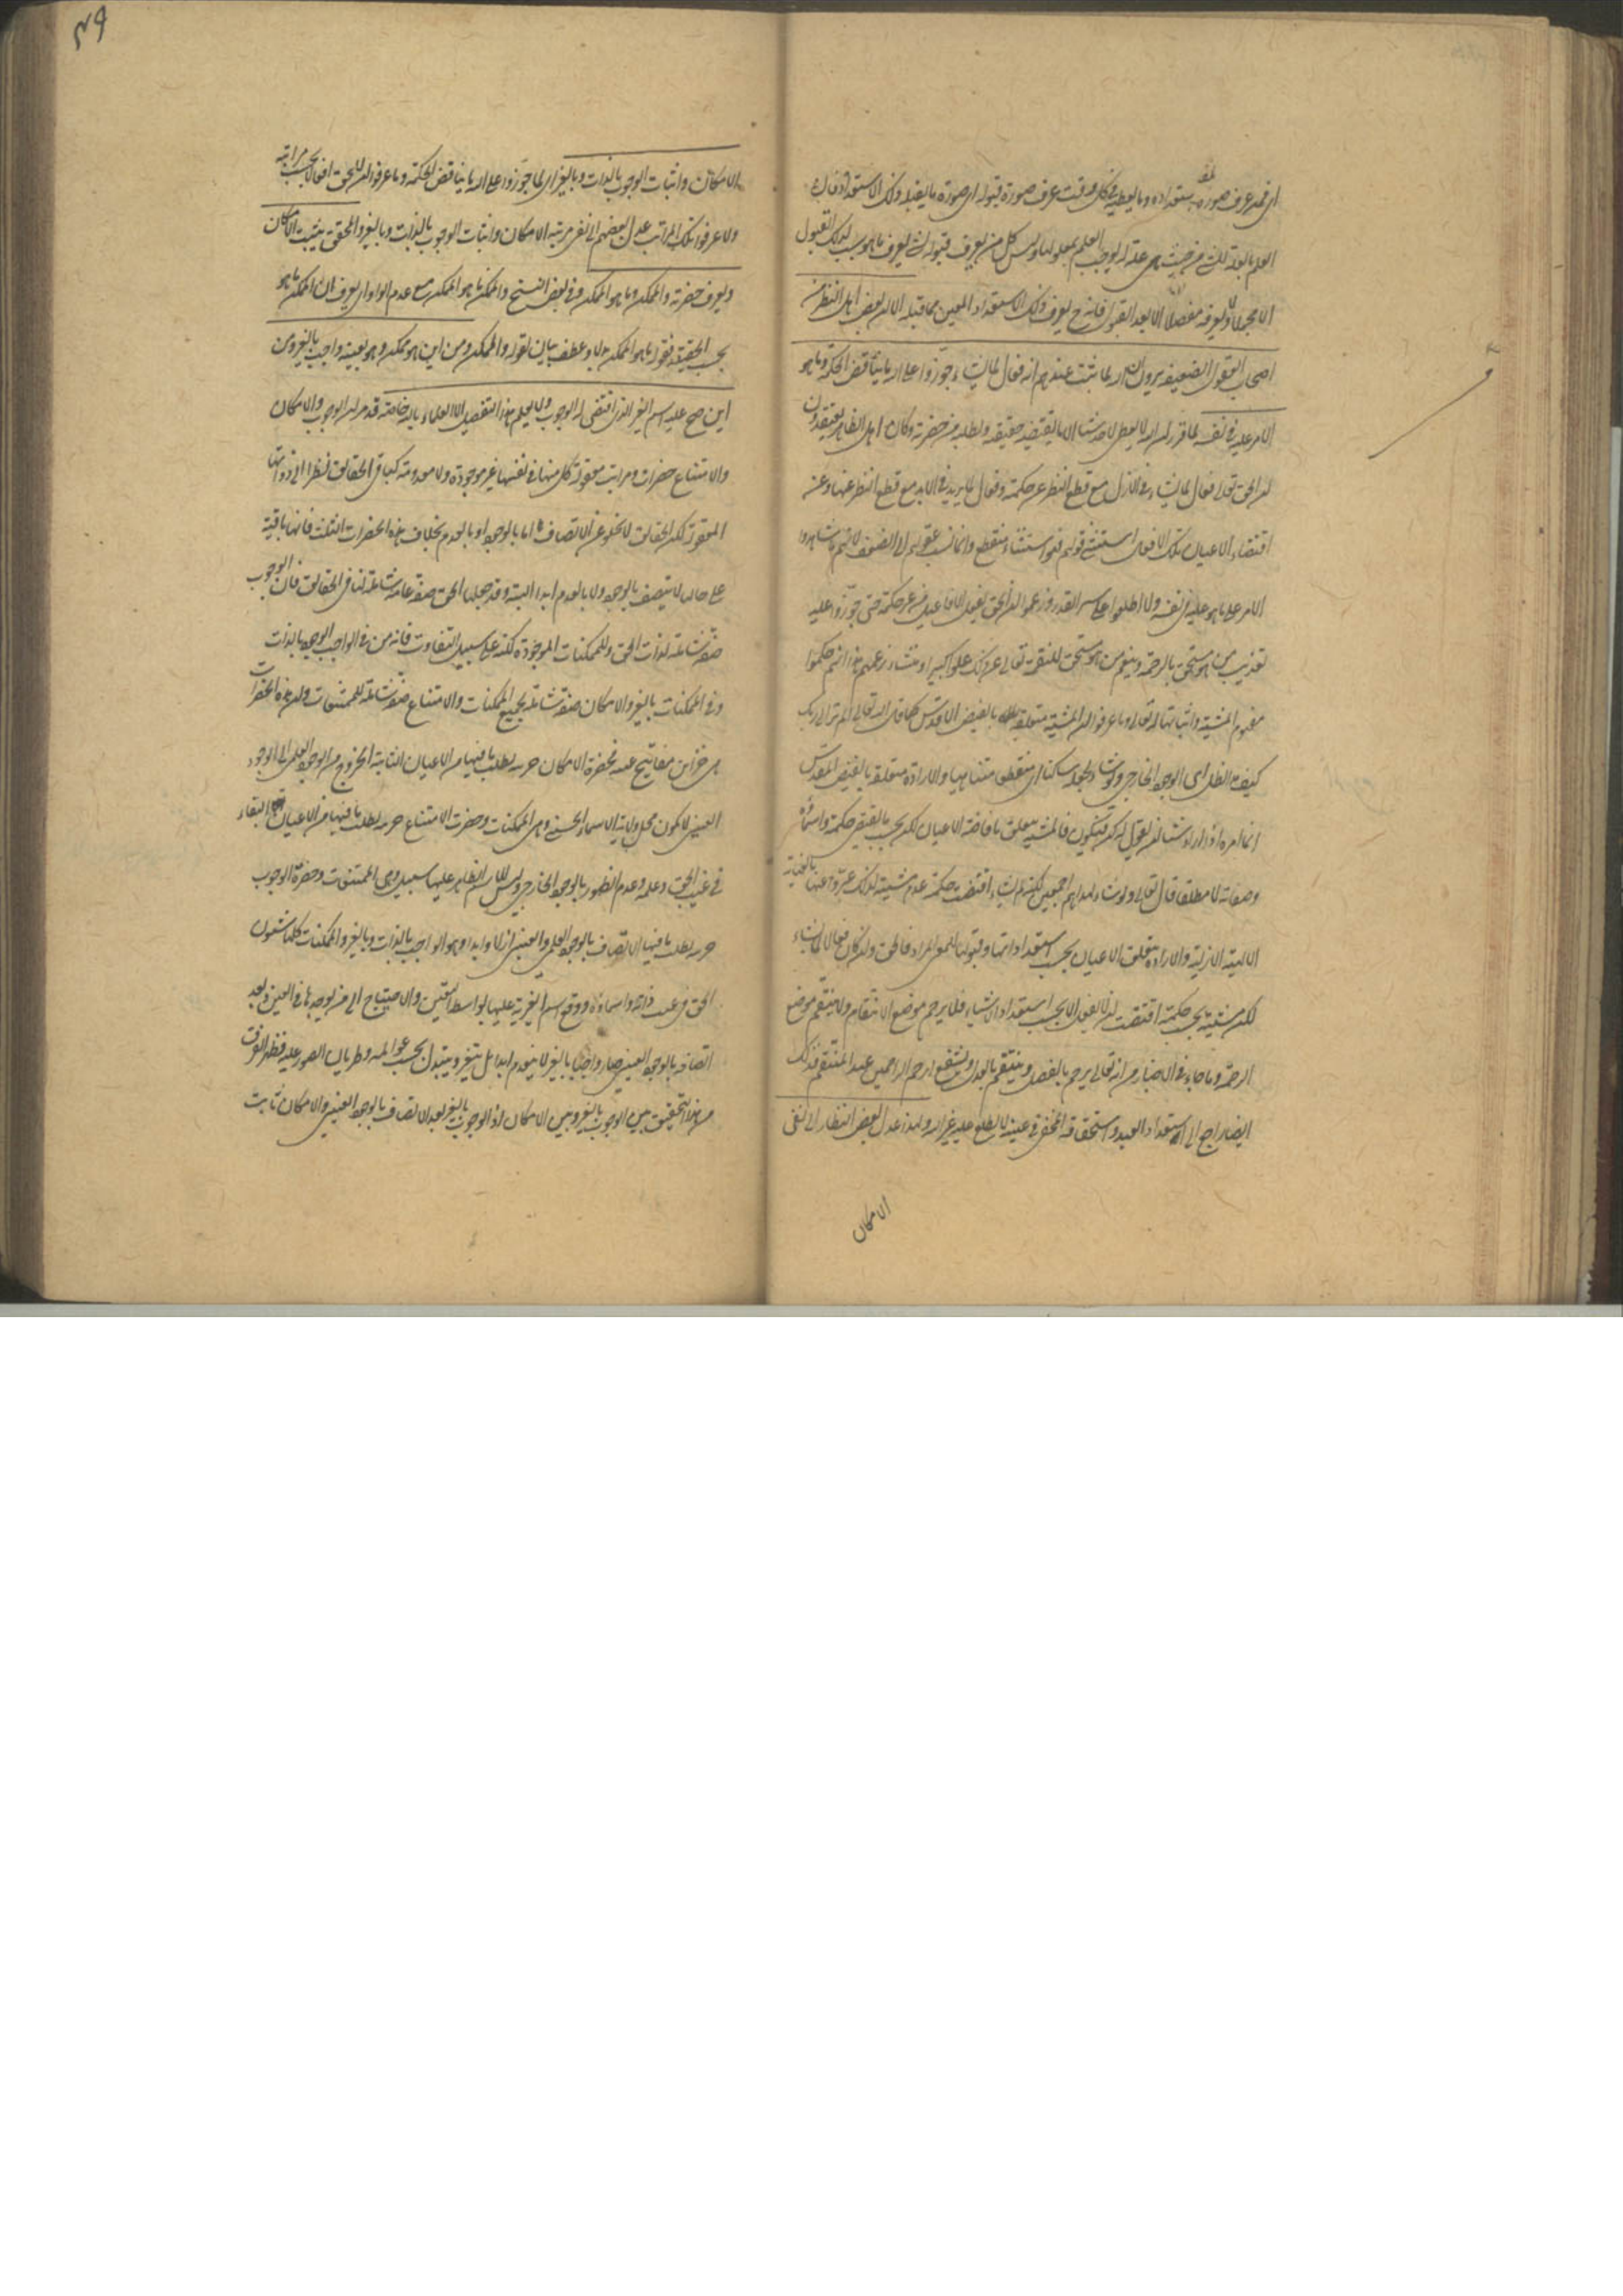 اى فمن عرف صورة استعداده وما يعطيه فى كل وقت عرف صورة قبوله اى صورة ما يقبله ذلك الاستعداد فان
العلم بالعلة التى من حيث هى علة له يوجب العلم بمعلولها وليس كل من يعرف قبوله الشى يعرف ما هو سبب لذلك القبول
الا مجملا ولا يعرفه مفصلا الا بعد القبول فانه ح يعرف ذلك الاستعداد المعين مما قبله الا ان بعض اهل النظر من
اصحاب العقول الضعيفة يرون ان الله لما ثبت عندهم انه فعال لما يشاء جوزوا على الله ما يناقض الحكمة وما هو
الامر عليه فى نفسه لما قرر ان الله لا يعطى لاحد شيئا الا ما يقتضيه حقيقته ويطلبه من حضرته وكان اهل الظاهر يعتقدون
ان الحق تعالى فعال لما يشاء فى الازل مع قطع النظر عن حكمته وفعال لما يريد فى الابد مع قطع النظر عنها وعن
اقتضاء الاعيان تلك الافعال استثنى قولهم فهو استثناء منقطع وانما نسب عقولهم الى الضعف لانهم ما شاهدوا
الامر على ما هو عليه فى نفسه ولا اطلعوا على سر القدر وزعموا ان الحق يفعل الافاعيل من غير حكمة حتى جوزوا عليه
تعذيب من هو مستحق بالرحمة وتنعم من هو مستحق للنقمة تعالى عن ذلك علوا كبيرا ومنشاء زعمهم هذا انهم حكموا
مفهوم المشية واثباتها له تعالى وما عرفوا ان المشية متعلقة بالفيض الاقدس كما قال الله تعالى الم تر الى ربك
كيف مد الظل اى الوجود الخارجى ولو شاء لجعله ساكنا اى منقطعا متناهيا والارادة متعلقة بالفيض المقدس
انما امره اذا اراد شيئا ان يقول له كن فيكون فالمشية يتعلق بافاضة الاعيان لكن بحسب ما يقتضى حكمته واسماؤه
وصفاته لا مطلقا قال تعالى ولو شاء لهداهم اجمعين لكنه لم يشاء اقتضت حكمته عدم مشيته لذلك عبروا عنها بالعناية
الالهية الازلية والارادة يتعلق الاعيان بحسب استعداداتها وقبولها للمعنى المراد فالحق وان كان فعالا لما يشاء
لكن مشيته بحسب حكمته اقتضت ان لا يفعل الا بحسب استعداد الاشياء فلا يرحم موضع الانتقام ولا ينتقم موضع
الرحمة وما جاء فى الاخبار من انه تعالى يرحم بالفضل وينتقم بالعدل ويشفع ارحم الراحمين عند المنتقم فذلك
ايضا راجع الى استعداد العبد واستحقاقه المخفى فى عينه لا يطلع عليه غير الله ولهذا عدل بعض النظار الى نفى
الامكان
٤٩
الامكان واثبات الوجوب بالذات وبالغير اى لما جوزوا على الله ما يناقض الحكمة وما عرفوا ان للحق افعالا بحسب مراتبه
ولا عرفوا تلك المراتب عدل بعضهم الى نفى مرتبة الامكان واثبات الوجوب بالذات وبالغير والمحقق يثبت الامكان
ويعرف حضرته والممكن وما هو الممكن وفى بعض النسخ والممكن ما هو الممكن مع عدم الواو اى يعرف ان الممكن ما هو
بحسب الحقيقة فقوله ما هو الممكن ولا وعطف بيان لقوله والممكن ومن اين هو ممكن وهو بعينه واجب بالغير ومن
اين صح عليه اسم الغير الذى اقتضى له الوجوب ولا يعلم هذا التفصيل الا العلماء بالله خاصة قد مر ان الوجوب والامكان
والامتناع حضرات ومراتب معقولة كل منها فى نفسها غير موجودة ولا معدومة كباقى الحقائق نظرا الى ذواتها
المعقولة لكن الحقائق لا تخلو عن الاتصاف اما بالوجود او بالعدم بخلاف هذه الحضرات الثلث فانها باقية
على حالها لا يتصف بالوجود ولا بالعدم ابدا البتة وقد جعلها الحق صفة عامة شاملة لباقى الحقائق فان الوجوب
صفة شاملة لذات الحق وللممكنات الموجودة لكنه على سبيل التفاوت فانه من فى الواجب الوجود بالذات
وفى الممكنات بالغير والامكان صفة شاملة بجميع الممكنات والامتناع صفة شاملة للممتنعات وان هذه الحضرات
هى خزاين مفاتيح غيبه فحضرة الامكان خزينة يطلب ما فيها من الاعيان الثابتة الخروج من الوجود العلمى الى الوجود
العينى لا كون محل ولاية الاسماء الحسنى وهى الممكنات وحضرت الامتناع خزينة يطلب ما فيها من الاعيان البقاء
فى غيب الحق وعلمه وعدم الظهور بالوجود الخارجى وليس للاسم الظاهر عليها سبيل وهى الممتنعات وحضرة الوجوب
خزينة يطلب ما فيها الاتصاف بالوجود العلمى والعينى ازلا وابدا وهو الواجب بالذات وبالغير والممكنات كلها شئون
الحق فى غيب ذاته واسماؤه ووقع اسم الغيرية عليها بواسطة التعين والاحتياج الى من يوجدها فى العين وبعد
اتصافه بالوجود العينى صار واجبا بالغير لا ينعدم ابدا بل يتغير ويتبدل بحسب عوالمه وطريان الصور عليه فظهر الفرق
من هذا التحقيق بين الوجوب بالغير وبين الامكان اذ الوجوب بالغير بعد الاتصاف بالوجود العينى والامكان ثابت